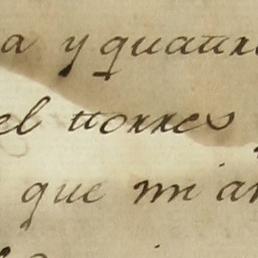 a y quatro
el torres
que mi